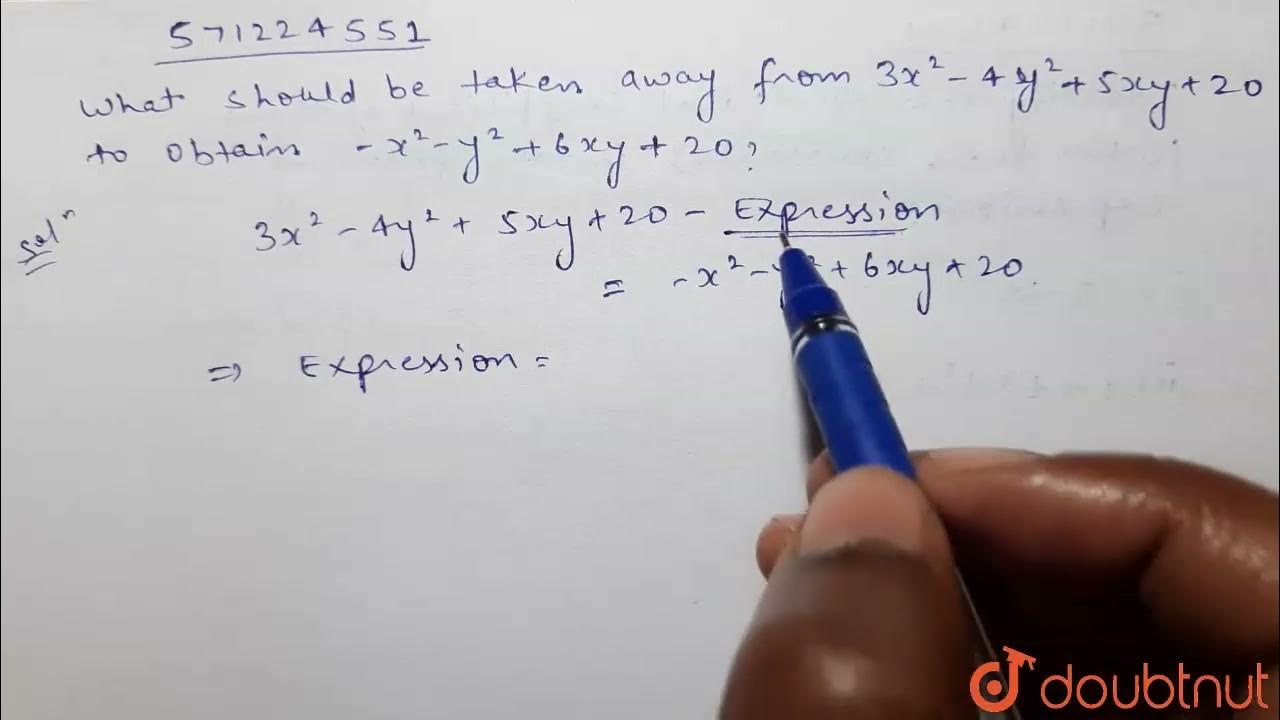 571224551
What should be taken away from 3x² - 4y² + 5xy + 20
to obtain -x² - y² + 6xy + 20?
Solⁿ
3x² - 4y² + 5xy + 20 - Expression
= -x² - y² + 6xy + 20.
⇒ Expression =
doubtnut